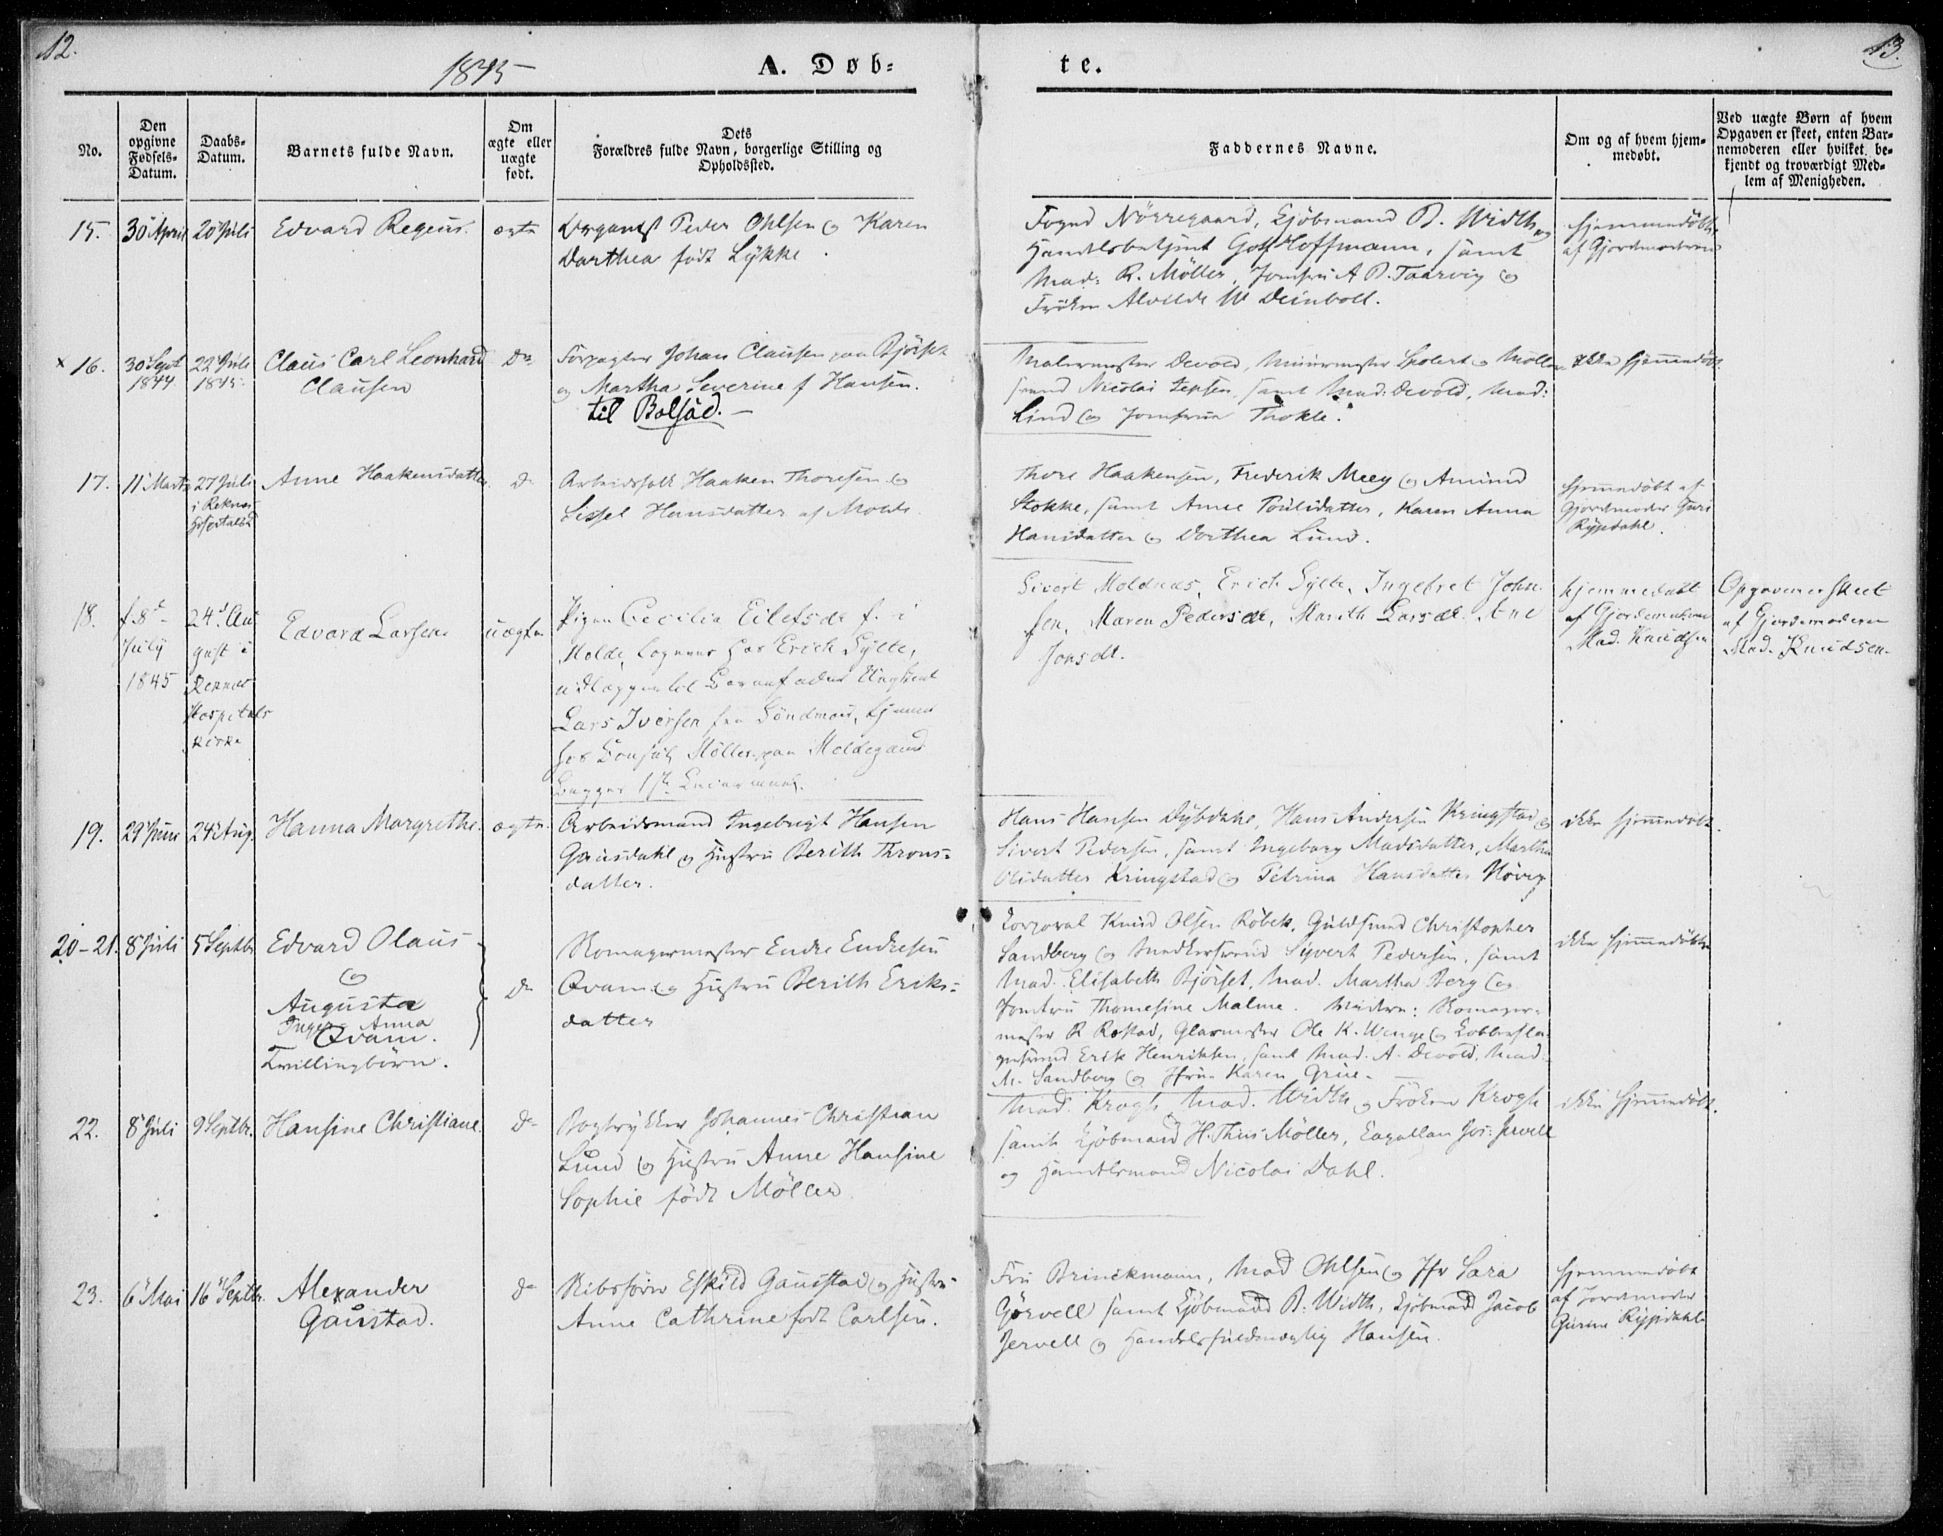 12.
1845
A. Døb-
te.
13.
No.
Den
opgivne
Fødsels-
Datum.
Daabs-
Datum.
Barnets fulde Navn.
Om
ægte eller
uægte
født.
Dets
Forældres fulde Navn, borgerlige Stilling og
Opholdssted.
Faddernes Navne.
Om og af hvem hjem-
medøbt.
Ved uægte Børn af hvem
Opgaven er skeet, enten Bar-
nemoderen eller hvilket be-
kjendt og troværdigt Med-
lem af Menigheden.
15.
30 April
20 Juli
Edvard Regeus.
ægte
Organist Peder Ohlsen og Karen
Dorthea født Lykke.
Foged Nørregaard, Kjøbmand B. Width og
Handelsbetjent Hoffmann, samt
Mad: R. Møller, Jomfru A B. Taarvig og
Frøken Alvilde M Deinboll.
hjemmedøbt
af Gjordmoderen
x 16.
30 Sept
1844
22 Juli
1845.
Claus Carl Leonhard
Clausen
do
Forpagter Johan Clausen paa Bjørset
og Martha Severine f Hansen.
til Bolsød.
Malermester Devold, Muurmester og Møller
svend Nicolai Jepsen, samt Mad: Devold, Mad:
Lind og Jomfrue Thokle.
ikke hjemmedøbt
17.
11 Marts
27 Juli
i Reknes
Hospitalet
Anne Haakensdatter
do
Arbeidsfolk Haaken Thoresen og
Sissel Hansdatter af Molde
Thore Haakensen, Frederik Meey og Amund
Stokke, samt Anne Poulsdatter, Karen Anna
Hansdatter og Dorthea Lund.
hjemmedøbt af
Gjordmoder Guri
Rypdahl.
18.
f. 8de
July
1845
24de Au
gust i
Hospitals
Kirke
Edvard Larsen
uægte
Pigen Cecilia Eilefsdr f. i
Molde, Logerer hos Erich Sylte,
udlægger til Barnefader Ungkarl
Lars Iversen fra Søndmøre, tjener
hos Consul Møller paa Moldegaard
Begges 1ste Leiermaal.
Sivert Moldnæs, Erich Sylte, Ingebret John
sen, Maren Pedersdr, Marith Larsdr. Ane
Jonsdt.
hjemmedøbt
af Gjordemoderen
Mad. Knudsen
Opgaven er skeet
af Gjordemoderen
Mad. Knudsen.
19.
29 Juni
24 Aug.
Hanna Margrethe.
ægte
Arbeidsmand Ingebrigt Hansen
Gausdahl og Hustru Berith Throns-
datter.
Hans Hansen Dybdahl, Hans Andersen Kringstad og
Sivert Pedersen, samt Ingeborg Madsdatter, Martha
Olsdatter Kringstad og Petrina Hansdatter Høvig
ikke hjemmedøbt.
20-21.
8 Juli
5 Septbr
Edvard Olaus
og
Augusta
Inger Anna
Qvam.
Tvillingbørn.
do
Skomagermester Endre Endresen
Qvam og Hustru Berith Eriks-
datter
Corporal Knud Olsen Røbek, Guldsmed Christopher
Sandberg og Snedkersvend Syvert Pedersen, samt
Mad. Elisabeth Bjørset, Mad. Martha Berg og
Jomfru Thomesine Malme. Skomager-
mester R Rostad, Glarmester Ole K. Wenge og Kobbersla-
gersvend Erik Henriksen, samt Mad. A. Devold, Mad
M. Sandberg og Jfru Karen Grüe.
ikke hjemmedøbte
22.
8 Juli
9 Septbr.
Hansine Christiane.
do
Bogtrykker Johannes Christian
Lund og Hustru Anne Hansine
Sophie født Møller
Mad. Krogh, Mad. Width og Frøken Krogh
samt Kjøbmand H. Thiis Møller, Capellan Jos: Jervell
og Handelsmand Nicolai Dahl.
ikke hjemmedøbt.
23.
6 Mai
16 Septbr.
Alexander
Gaustad.
do
Skibsfører Eskild Gaustad og Hustru
Anne Cathrine født Carlsen.
Fru Brinckmann, Mad Ohlsen og Jfr Sara
Gørvell samt Kjøbmand B. Width, Kjøbmand Jacob
Jervell og Handelsfuldmægtig Hansen.
hjemmedøbt
af Jordmoder
Gurine Rypdahl